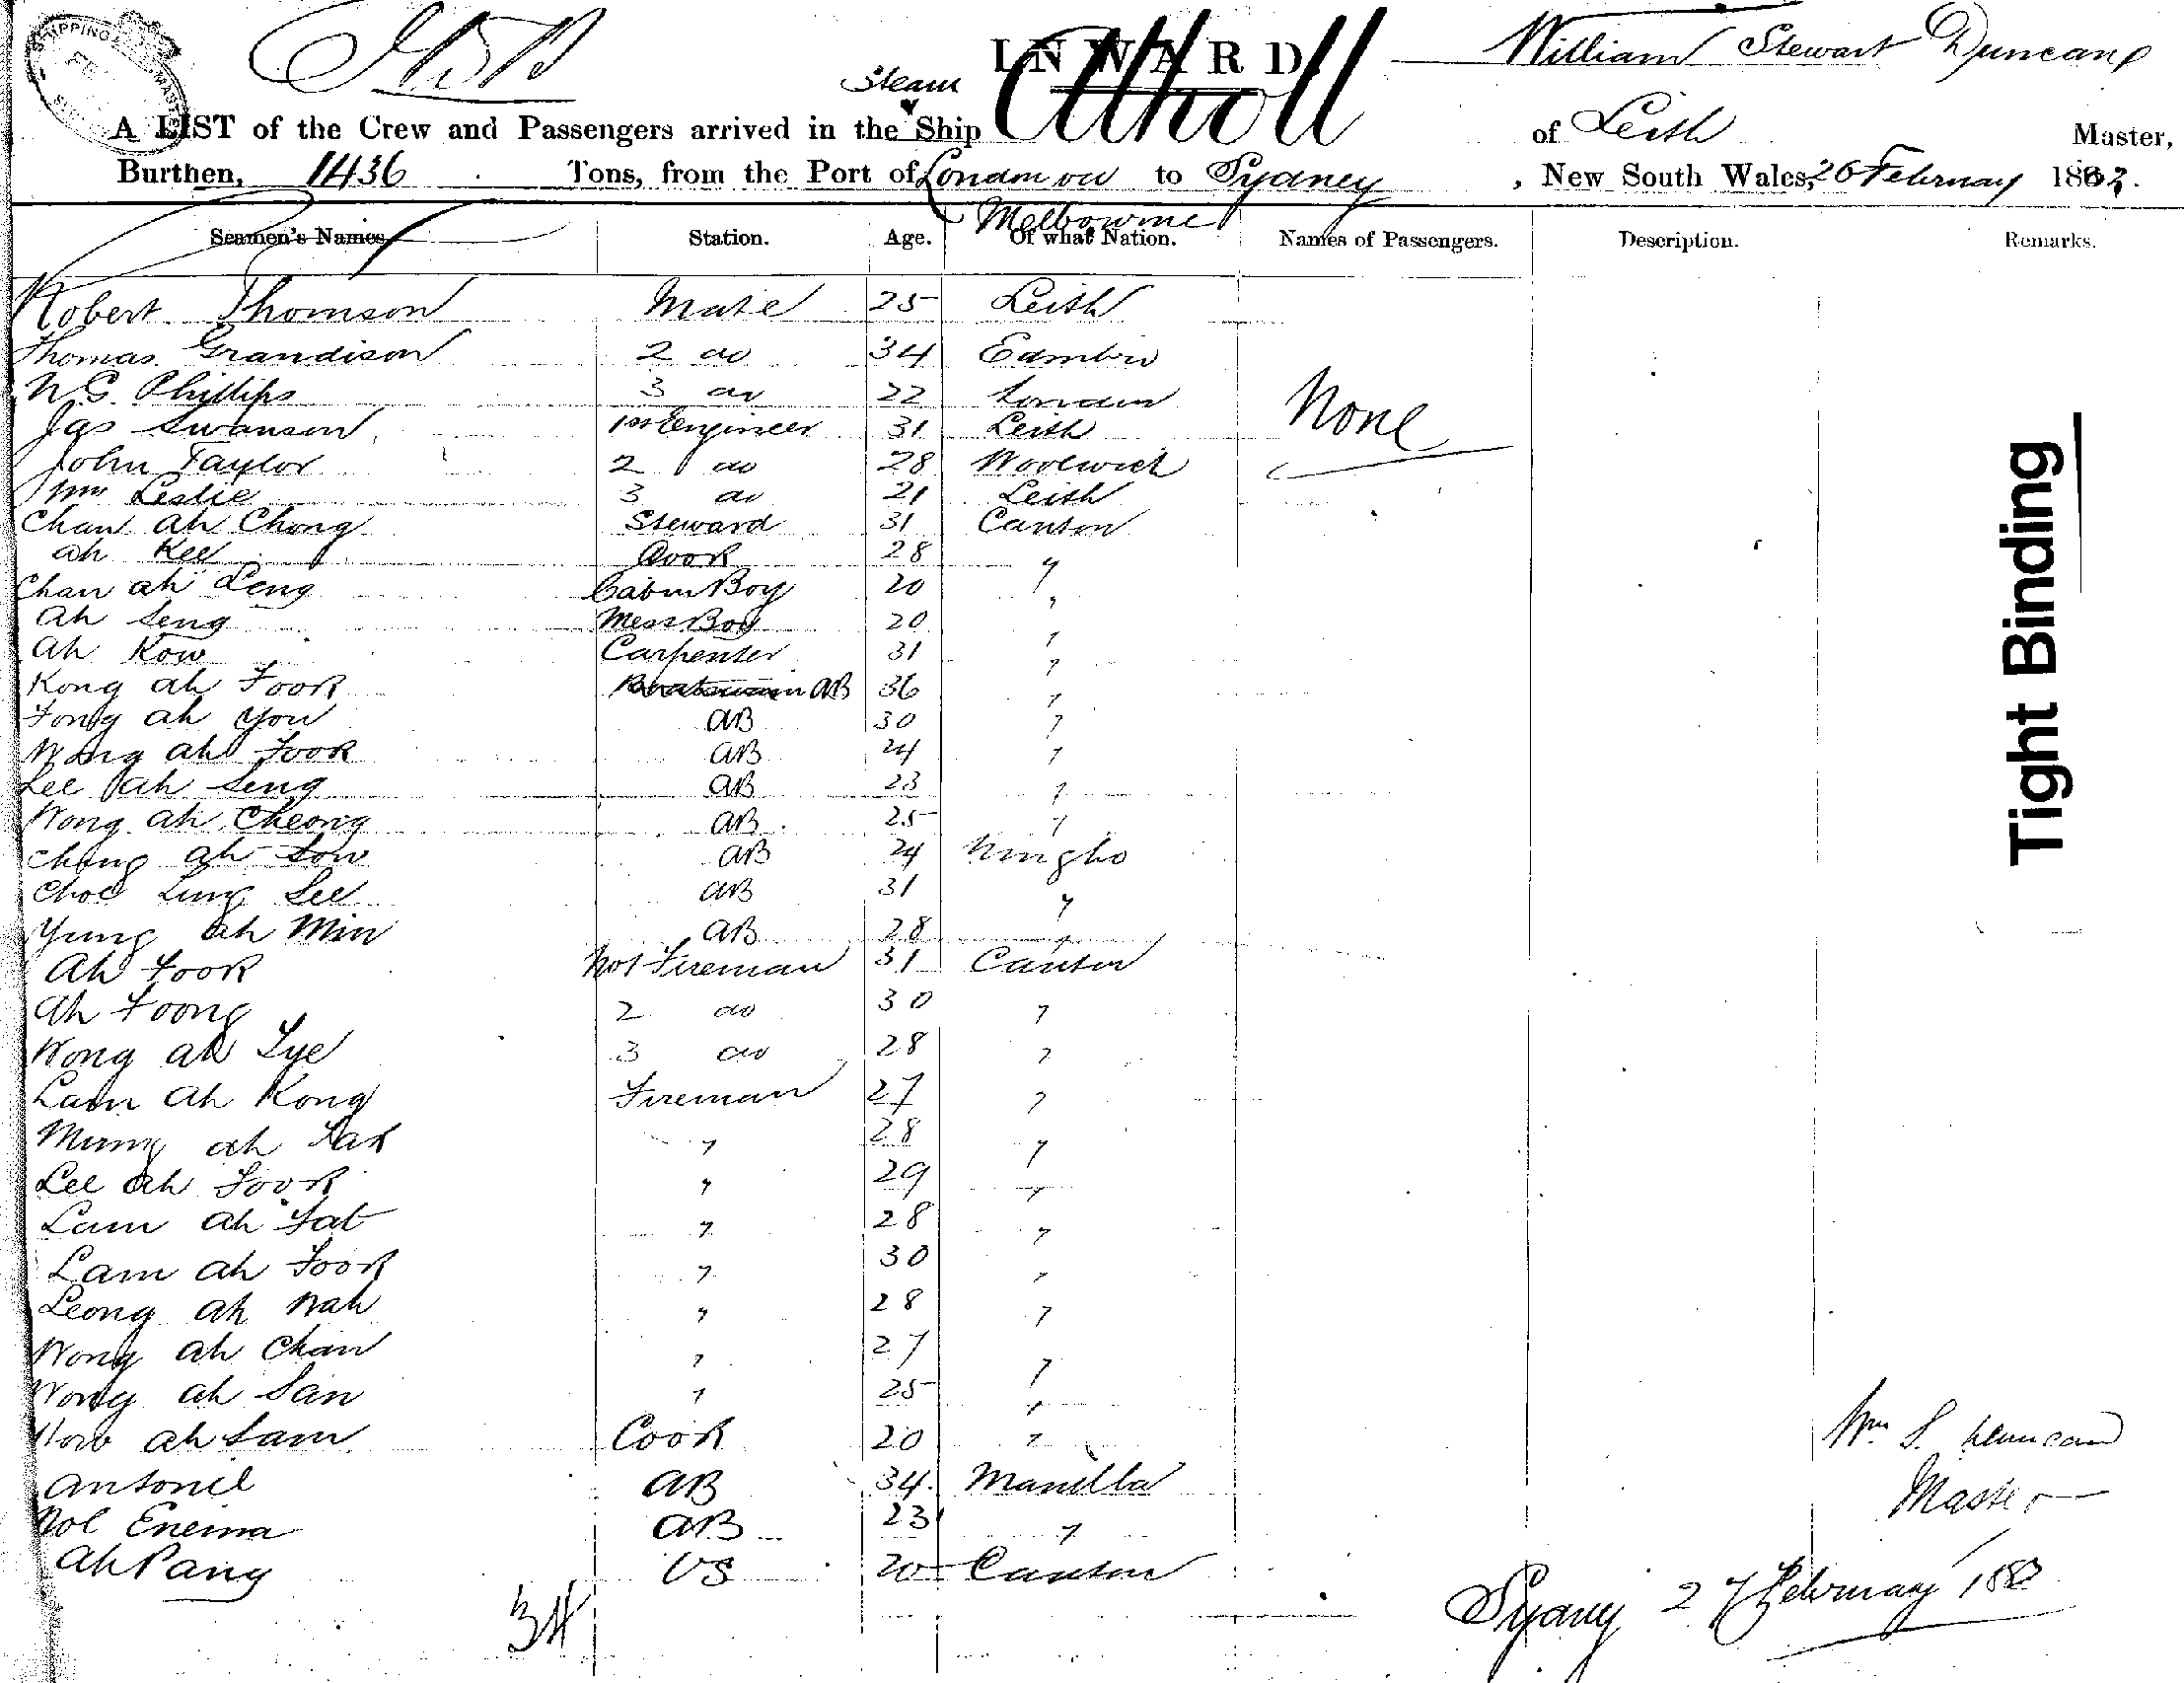 INWARD.
William Stewart Duncan
Steam
A LIST of the Crew and Passengers arrived in the Ship Atholl of Leith Master,
Burthen, 1436 Tons, from the Port of London to Sydney, New South Wales, 26 February 188
Melbourne
Seamen's Names Station. Age. Of what Nation. Names of Passengers. Description. Remarks.
Robert Thomson Mate 25 Leith
Thomas Grandison 2 do 34 Edinbro
W. G. Phillips 3 do 22 London
None
Jas Swanson 1st Engineer 31 Leith
John Taylor 2 do 28 Woolwich
Wm Leslie 3 do 21 Leith
Chan Ah Chong Steward 31 Canton
Ah Kee Cook 28 "
Chan Ah Leng Cabin Boy 20 "
Ah Seng Mess Boy 20 "
Ah Kow Carpenter 31 "
Kong Ah Fook Boatswain AB 36 "
Fong Ah You AB 30 "
Wong Ah Fook AB 24 "
Lee Ah Seng AB 23 "
Wong Ah Cheong AB 25 "
Chung Ah Sow AB 24 Ningho
Choe Lung See AB 31 "
Yung Ah Min AB 28 "
Ah Fook No1 Fireman 31 Canton
Ah Foong 2 do 30 "
Wong Ah Lye 3 do 28 "
Lam Ah Kong Fireman 27 "
Mung Ah Tak " 28 "
Lee Ah Fook " 29 "
Lam Ah Fat " 28 "
Lam Ah Fook " 30 "
Leong Ah Wah " 28 "
Wong Ah Chan " 27 "
Wong Ah San " 25 "
How Ah Sam Cook 20 "
Wm S. Duncan
Antonie AB 34 Manilla
Master
Nol Eneima AB 23 "
Ah Pang OS 20 Canton
Sydney 27 February 188
34
Tight Binding